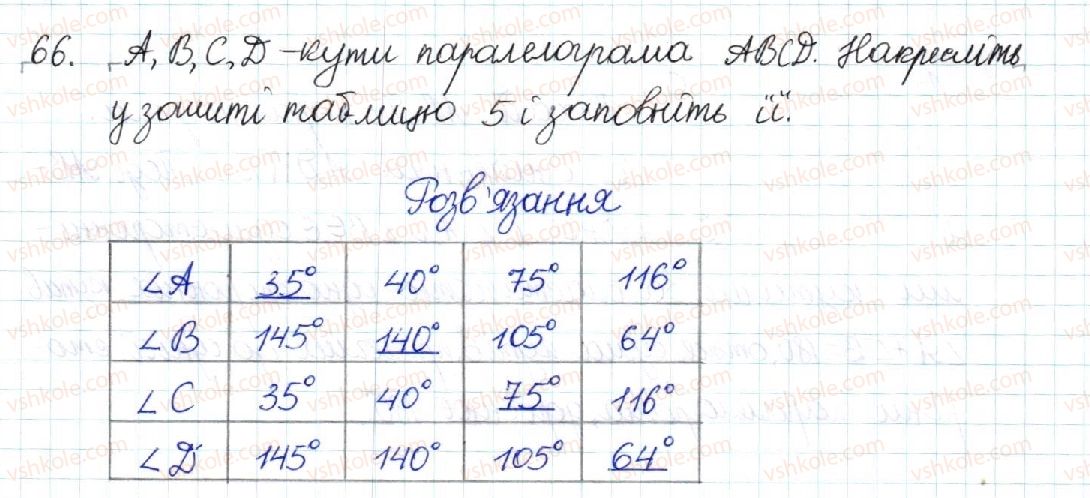 66. A, B, C, D - кути паралелограма ABCD. Накресліть
у зошиті таблицю 5 і заповніть її.
Розв'язання
∠A 35° 40° 75° 116°
∠B 145° 140° 105° 64°
∠C 35° 40° 75° 116°
∠D 145° 140° 105° 64°